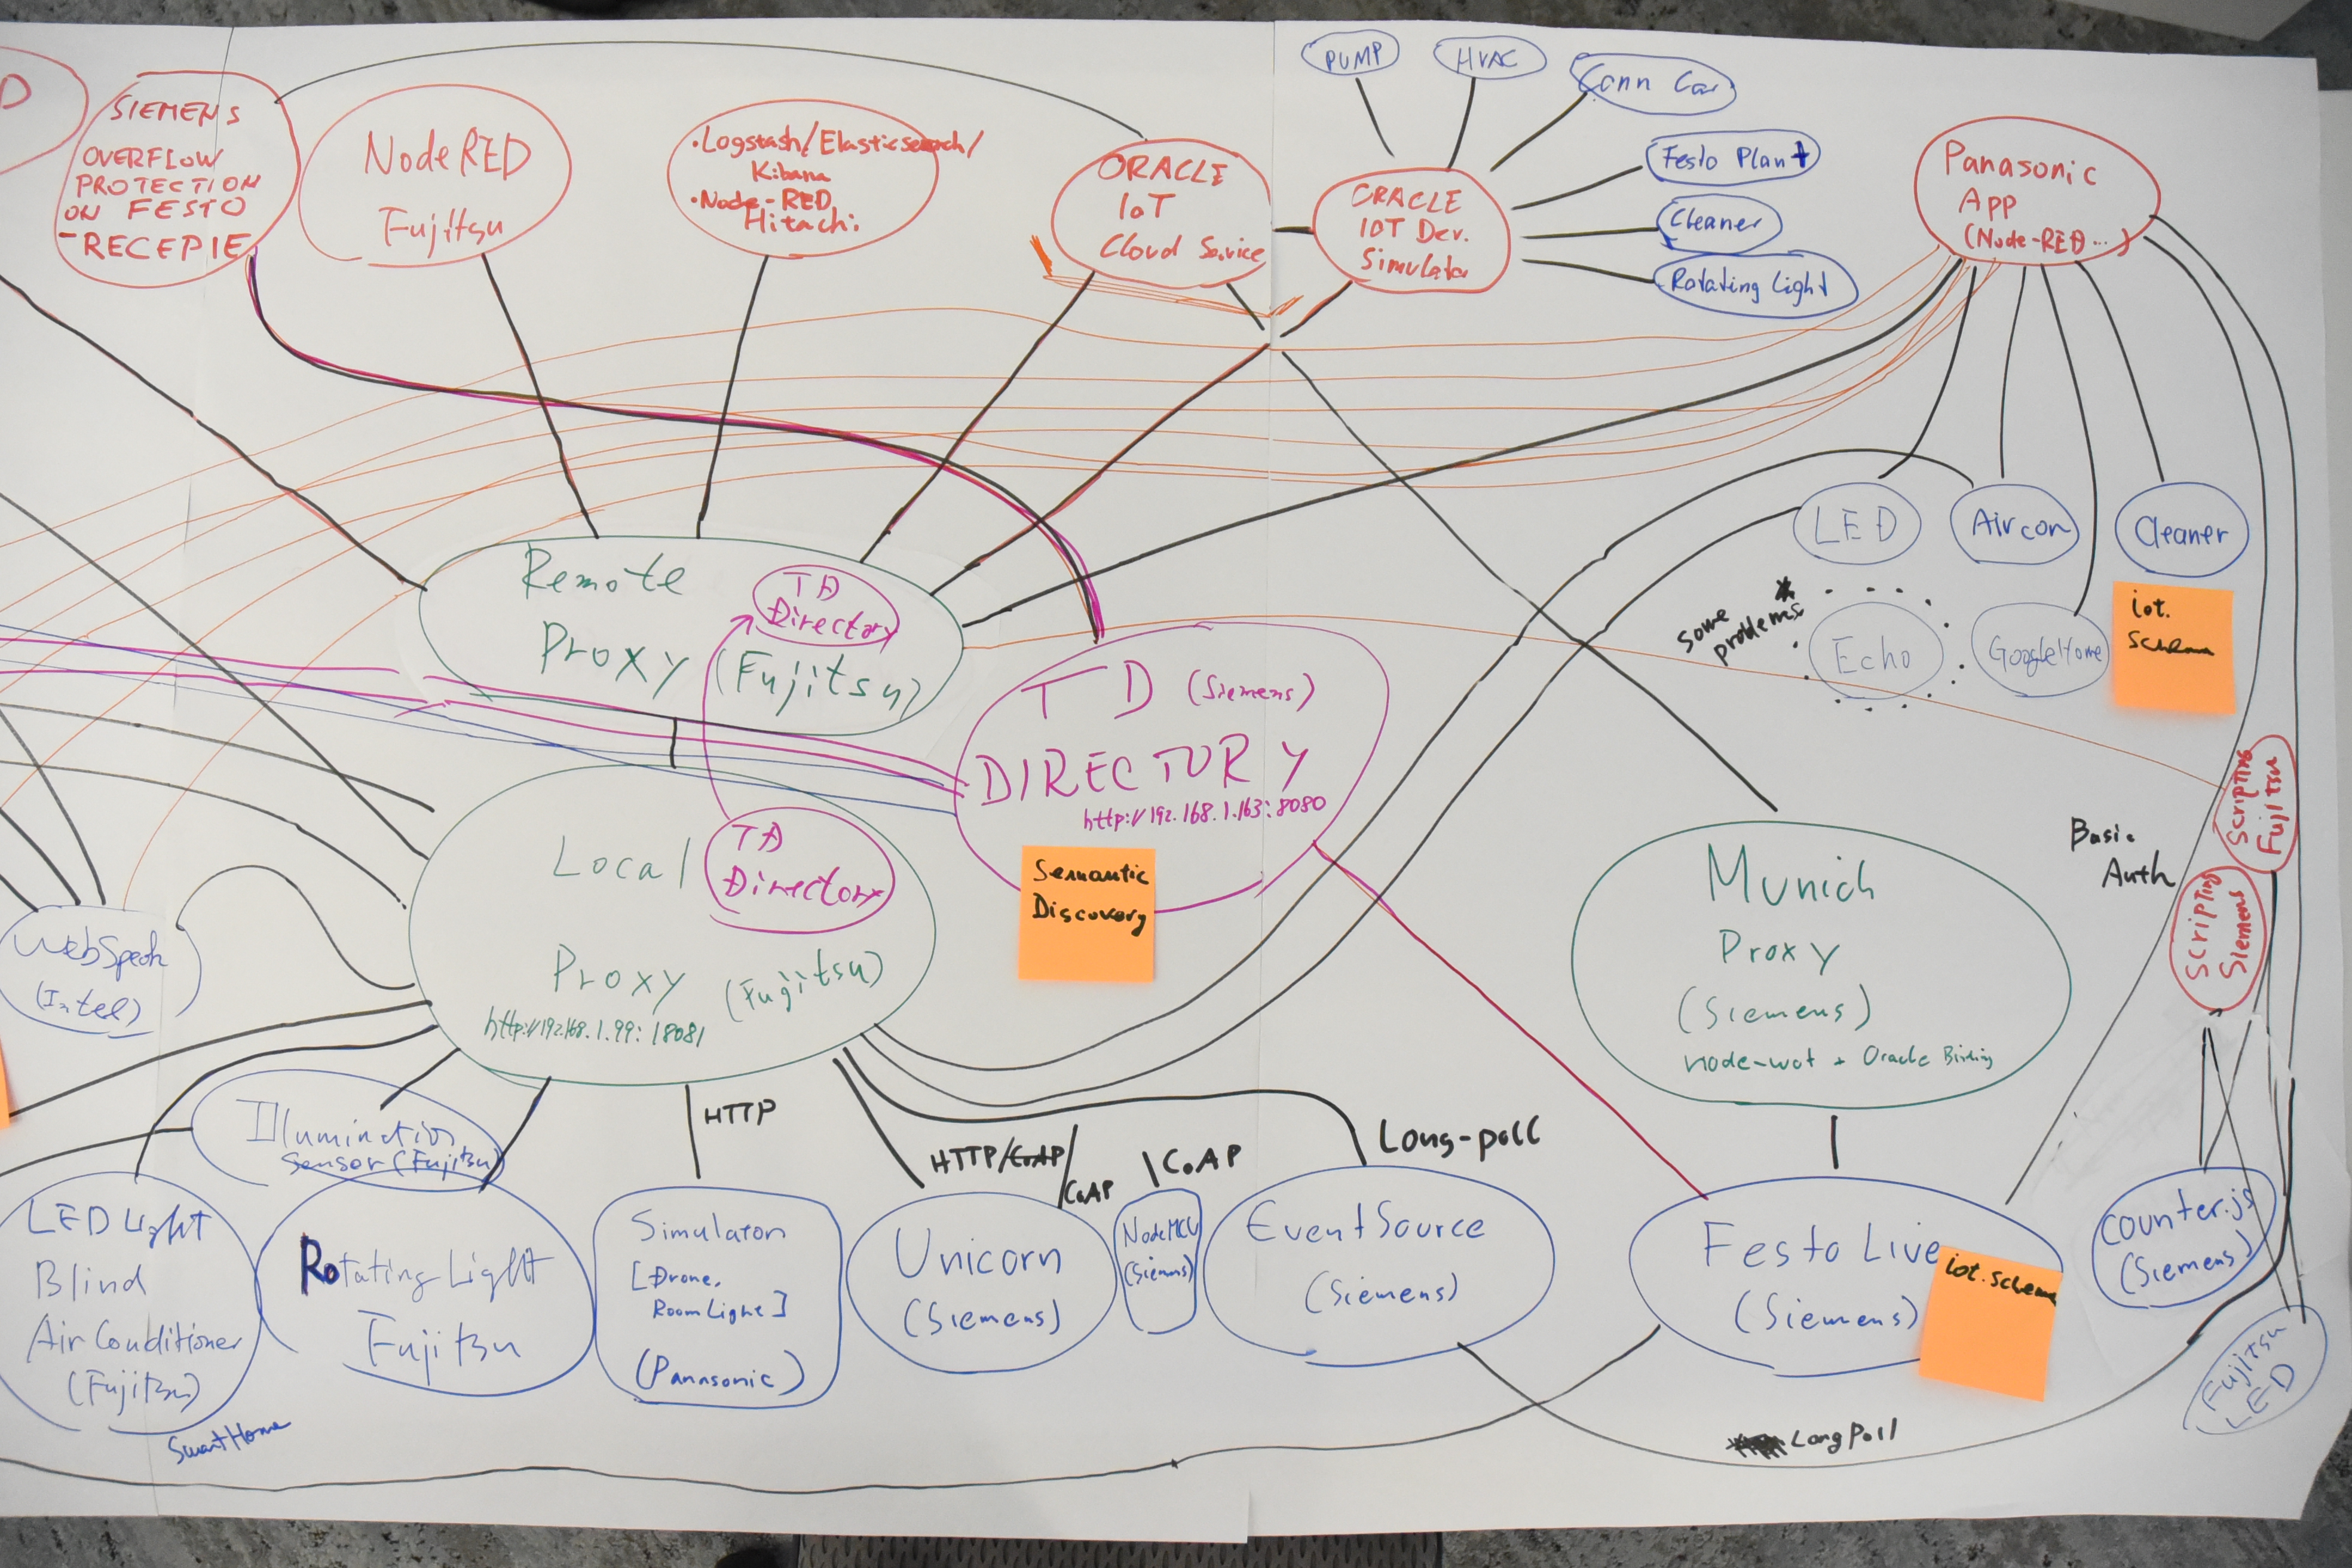 D
SIEMENS
OVERFLOW
PROTECTION
ON FESTO
-RECEPIE
NodeRED
Fujitsu
•Logstash/Elasticsearch/
Kibana
•Node-RED
Hitachi
ORACLE
IoT
Cloud Service
ORACLE
IOT Dev.
Simulator
PUMP
HVAC
Conn Car
Festo Plant
Cleaner
Rotating Light
Panasonic
App
(Node-RED...)
LED
Aircon
Cleaner
some
problems
Echo
GoogleHome
iot.
schema
Remote
Proxy (Fujitsu)
TD
Directory
TD (Siemens)
DIRECTORY
http://192.168.1.163:8080
Semantic
Discovery
Local
Proxy (Fujitsu)
http://192.168.1.99:18081
TD
Directory
WebSpeak
(Intel)
Munich
Proxy
(Siemens)
node-wot + Oracle Binding
Basic
Auth
Scripting
Fujitsu
Scripting
Siemens
Illumination
Sensor (Fujitsu)
HTTP
HTTP/CoAP/
CoAP
CoAP
Long-poll
LED Light
Blind
Air Conditioner
(Fujitsu)
SmartHome
Rotating Light
Fujitsu
Simulator
[Drone,
RoomLight]
(Panasonic)
Unicorn
(Siemens)
NodeMCU
(Siemens)
EventSource
(Siemens)
Festo Live
(Siemens)
iot.schema
counter.js
(Siemens)
Fujitsu
LED
LongPoll